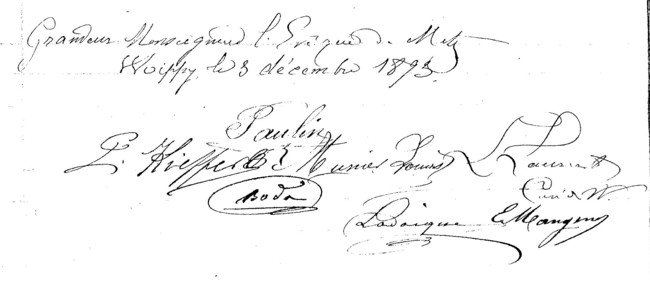 Grandeur Monseigneur l'Evêque de Metz
Woippy, le 3 décembre 1893.
Paulin
Munier Louis L. Laurent
Curé de W.
Boda
Ladaique E. Mangenot